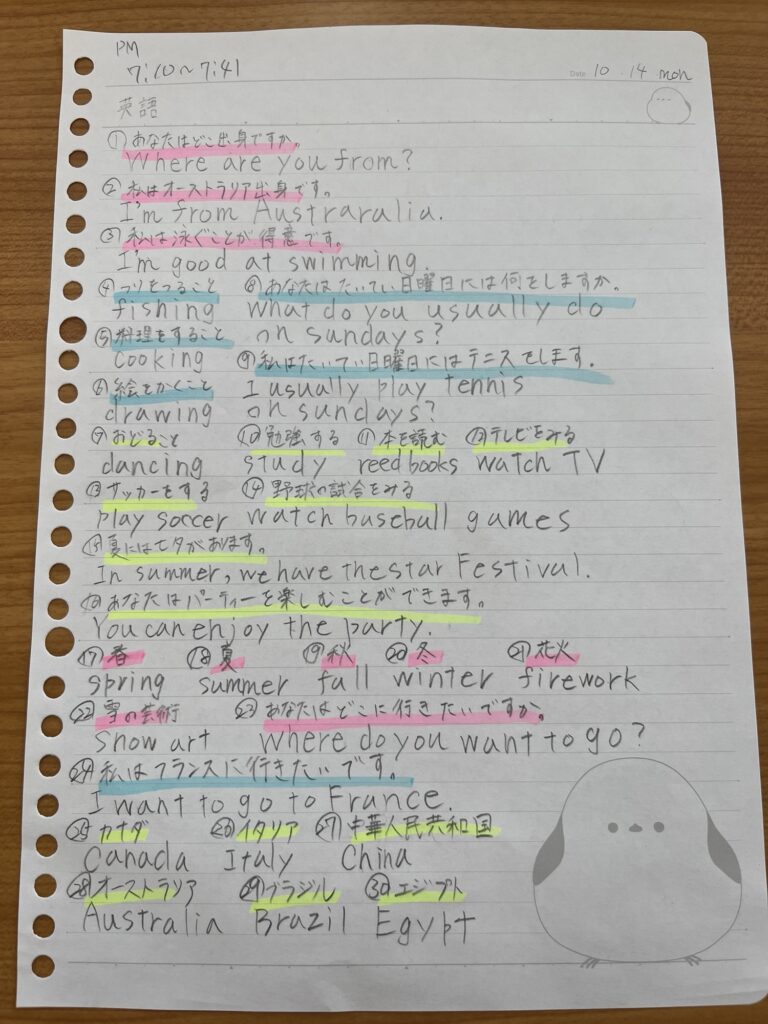 PM
7:10～7:41
Date 10 . 14 mon
英語
①あなたはどこ出身ですか。
Where are you from?
②私はオーストラリア出身です。
I'm from Australaralia.
③私は泳ぐことが得意です。
I'm good at swimming.
④つりをつること ⑧あなたはたいてい日曜日には何をしますか。
fishing what do you usually do
⑤料理をすること on sundays?
cooking ⑨私はたいてい日曜日にはテニスをします。
⑥絵をかくこと I usually play tennis
drawing on sundays?
⑦おどること ⑩勉強する ⑪本を読む ⑫テレビをみる
dancing study reed books watch TV
⑬サッカーをする ⑭野球の試合をみる
play soccer watch baseball games
⑮夏には七夕があります。
In summer, we have the star Festival.
⑯あなたはパーティーを楽しむことができます。
You can enjoy the party.
⑰春 ⑱夏 ⑲秋 ⑳冬 ㉑花火
spring summer fall winter firework
㉒雪の芸術 ㉓あなたはどこに行きたいですか。
snow art Where do you want to go?
㉔私はフランスに行きたいです。
I want to go to France.
㉕カナダ ㉖イタリア ㉗中華人民共和国
Canada Italy China
㉘オーストラリア ㉙ブラジル ㉚エジプト
Australia Brazil Egypt